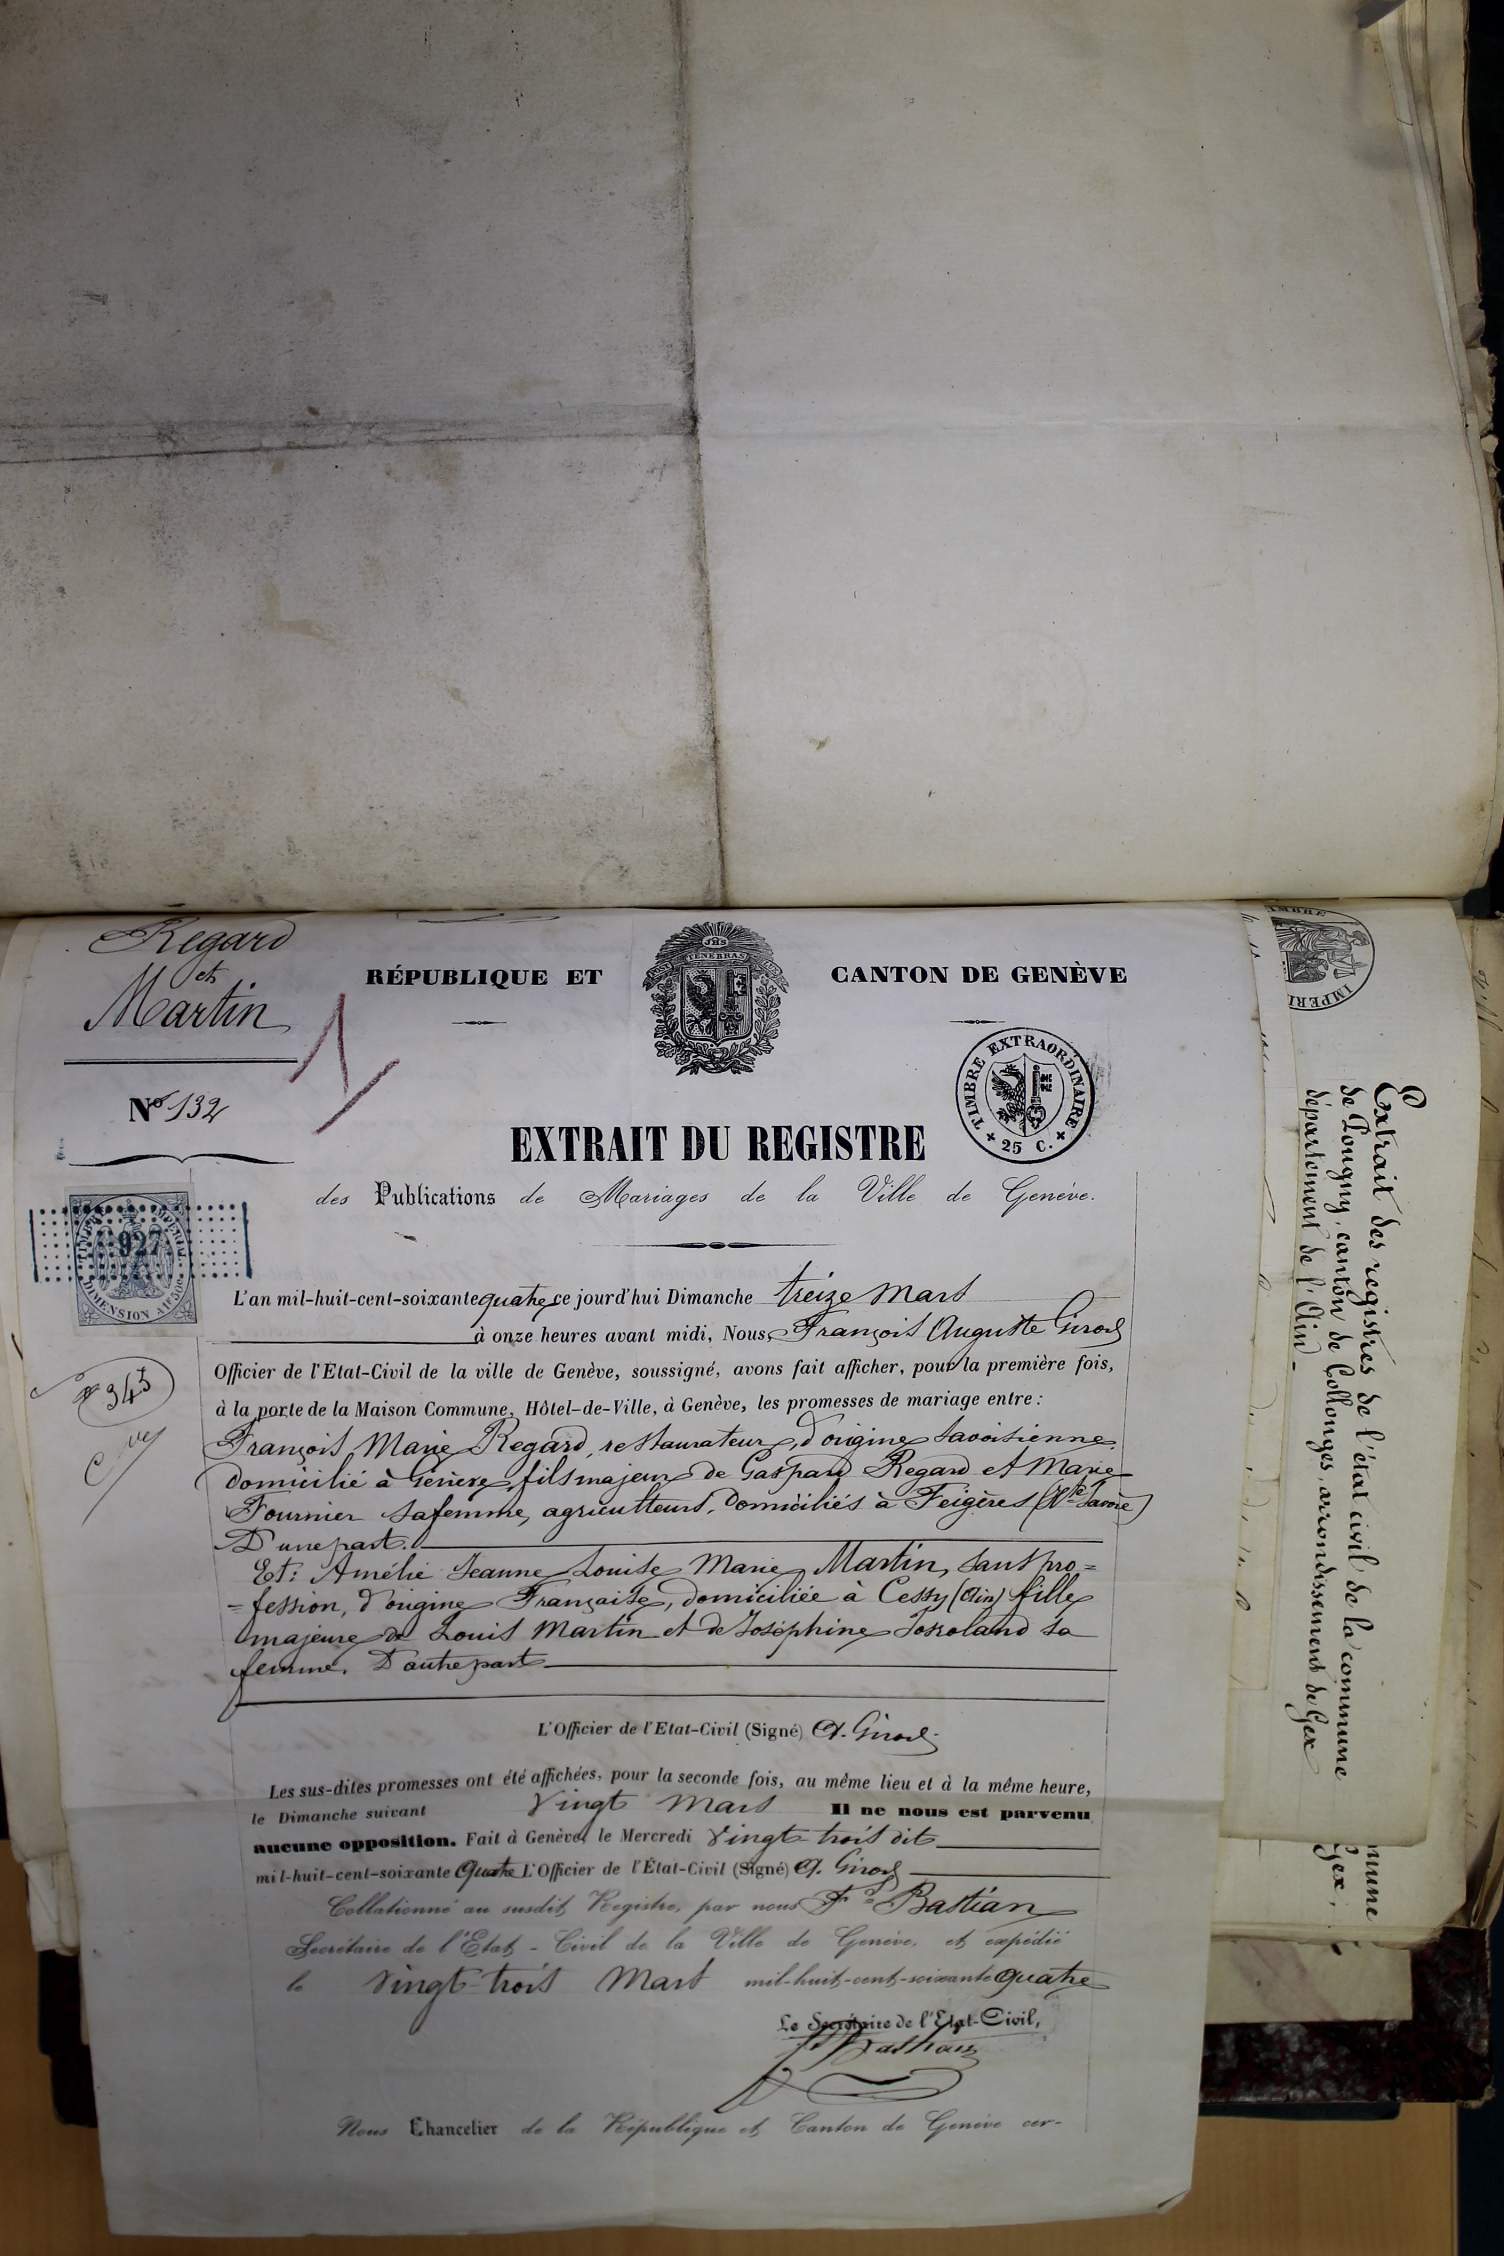 Regard
et
Martin
No 132
RÉPUBLIQUE ET CANTON DE GENÈVE
JHS
TENEBRAS
TIMBRE EXTRAORDINAIRE
25 C.
EXTRAIT DU REGISTRE
des Publications de Mariages de la Ville de Genève.
927
DIMENSION
343
L'an mil-huit-cent-soixante quatre ce jourd'hui Dimanche treize Mars
à onze heures avant midi, Nous, François Auguste Girod
Officier de l'Etat-Civil de la ville de Genève, soussigné, avons fait afficher, pour la première fois,
à la porte de la Maison Commune, Hôtel-de-Ville, à Genève, les promesses de mariage entre :
François Marie Regard, restaurateur, d'origine Savoisienne,
domicilié à Genève, fils majeur de Gaspard Regard et Marie
Fournier sa femme, agriculteurs, domiciliés à Feigères (Hte Savoie)
D'une part.
Et: Amélie Jeanne Louise Marie Martin, sans pro=
=fession, d'origine Française, domiciliée à Cessy (Ain) fille
majeure de Louis Martin et de Joséphine sa
femme. D'autre part
L'Officier de l'Etat-Civil (Signé) A. Girod.
Les sus-dites promesses ont été affichées, pour la seconde fois, au même lieu et à la même heure,
le Dimanche suivant Vingt Mars Il ne nous est parvenu
aucune opposition. Fait à Genève, le Mercredi Vingt-trois dit
mil-huit-cent-soixante Quatre L'Officier de l'État-Civil (Signé) A. Girod
Collationné au susdit Registre, par nous Fs Bastian
Secrétaire de l'Etat-Civil de la Ville de Genève, et expédié
le Vingt-trois Mars mil-huit-cent-soixante quatre
Le Secrétaire de l'Etat-Civil,
F Bastian
Nous Chancelier de la République et Canton de Genève cer-
Extrait des registres de l'état civil de la commune
de Pougny, canton de Collonges, arrondissement de Gex
département de l'Ain -
mune
Gex,